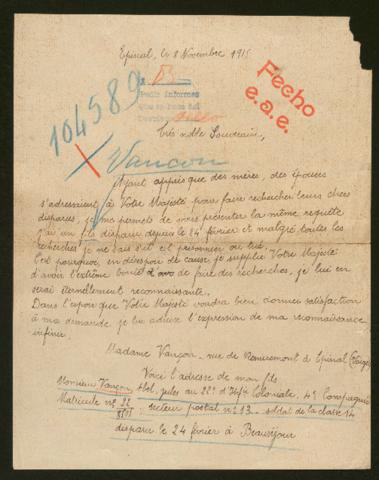 Epinal, le 8 Novembre 1915
Fecho
e.a.e.
104589
Pedir informes
Très noble Souverain,
Vançon
Ayant appris que des mères, des épouses
s'adressaient à Votre Majesté pour faire rechercher leurs chers
disparus, je me permets de vous présenter la même requête
J'ai un fils disparu depuis le 24 février et malgré toutes les
recherches je ne sais s'il est prisonnier ou tué.
C'est pourquoi, en désespoir de cause, je supplie Votre Majesté
d'avoir l'extrême bonté de faire des recherches, je lui en
serai éternellement reconnaissante.
Dans l'espoir que Votre Majesté voudra bien donner satisfaction
à ma demande, je lui adresse l'expression de ma reconnaissance
infinie.
Madame Vançon, rue de Remiremont à Epinal (Vosges)
Voici l'adresse de mon fils
Monsieur Vançon, Jules au 22e d'Infie Coloniale, 4e Compagnie
Matricule no secteur postal no 13. soldat de la classe 14
disparu le 24 février à Beauséjour